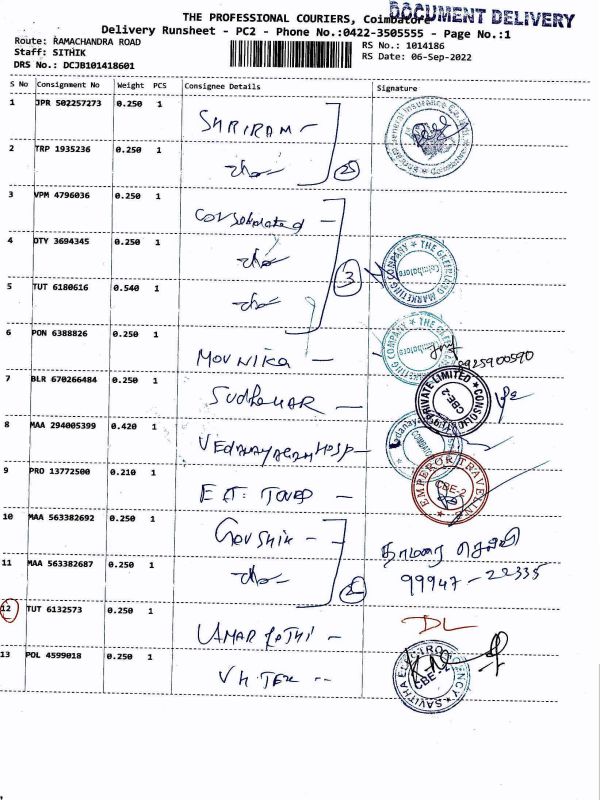 DOCUMENT DELIVERY
THE PROFESSIONAL COURIERS, Coimbatore
Delivery Runsheet - PC2 - Phone No.:0422-3505555 - Page No.:1
Route: RAMACHANDRA ROAD
Staff: SITHIK
DRS No.: DCJB101418601
RS No.: 1014186
RS Date: 06-Sep-2022
S No Consignment No Weight PCS Consignee Details Signature
1 JPR 502257273 0.250 1 SHRIRAM -
2 TRP 1935236 0.250 1
3 VPM 4796036 0.250 1 Consolidated -
4 DTY 3694345 0.250 1
3
5 TUT 6180616 0.540 1
6 PON 6388826 0.250 1 MOUNIKA -
7 BLR 670266484 0.250 1 SUDHAKAR -
8 MAA 294005399 0.420 1 VEDANAYAGAM HOSP -
9 PRO 13772500 0.210 1
EMPEROR TRAVEL
CBE-2
10 MAA 563382692 0.250 1 Goushik - தாமரை செல்வி
11 MAA 563382687 0.250 1 99947-22335
2
12 TUT 6132573 0.250 1 DL
13 POL 4599018 0.250 1
SAVITHA ELECTRO AGENCY
CBE-2
THE GREENLAND MARKETING COMPANY
Coimbatore
PRIVATE LIMITED
CBE-2